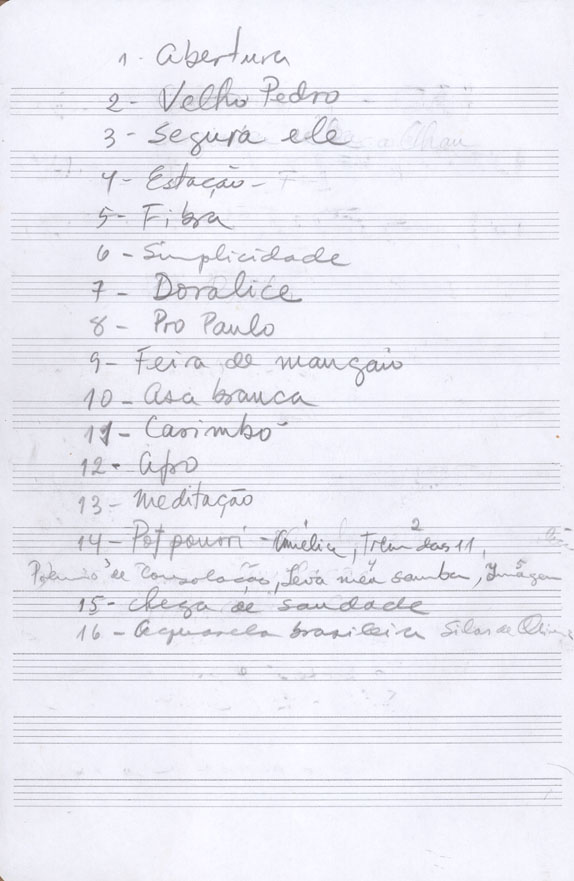 1- Abertura
2- Velho Pedro
3- Segura ele
4- Estação -
5- Fibra
6- Simplicidade
7- Doralice
8- Pro Paulo
9- Feira de mangaio
10- Asa branca
11- Carimbó
12- Afro
13- Meditação
14- Pot pourri - Amélia, Trem das 11,
de consolação, Leva meu samba, Imagem
15- Chega de saudade
16- Aquarela brasileira Silas de